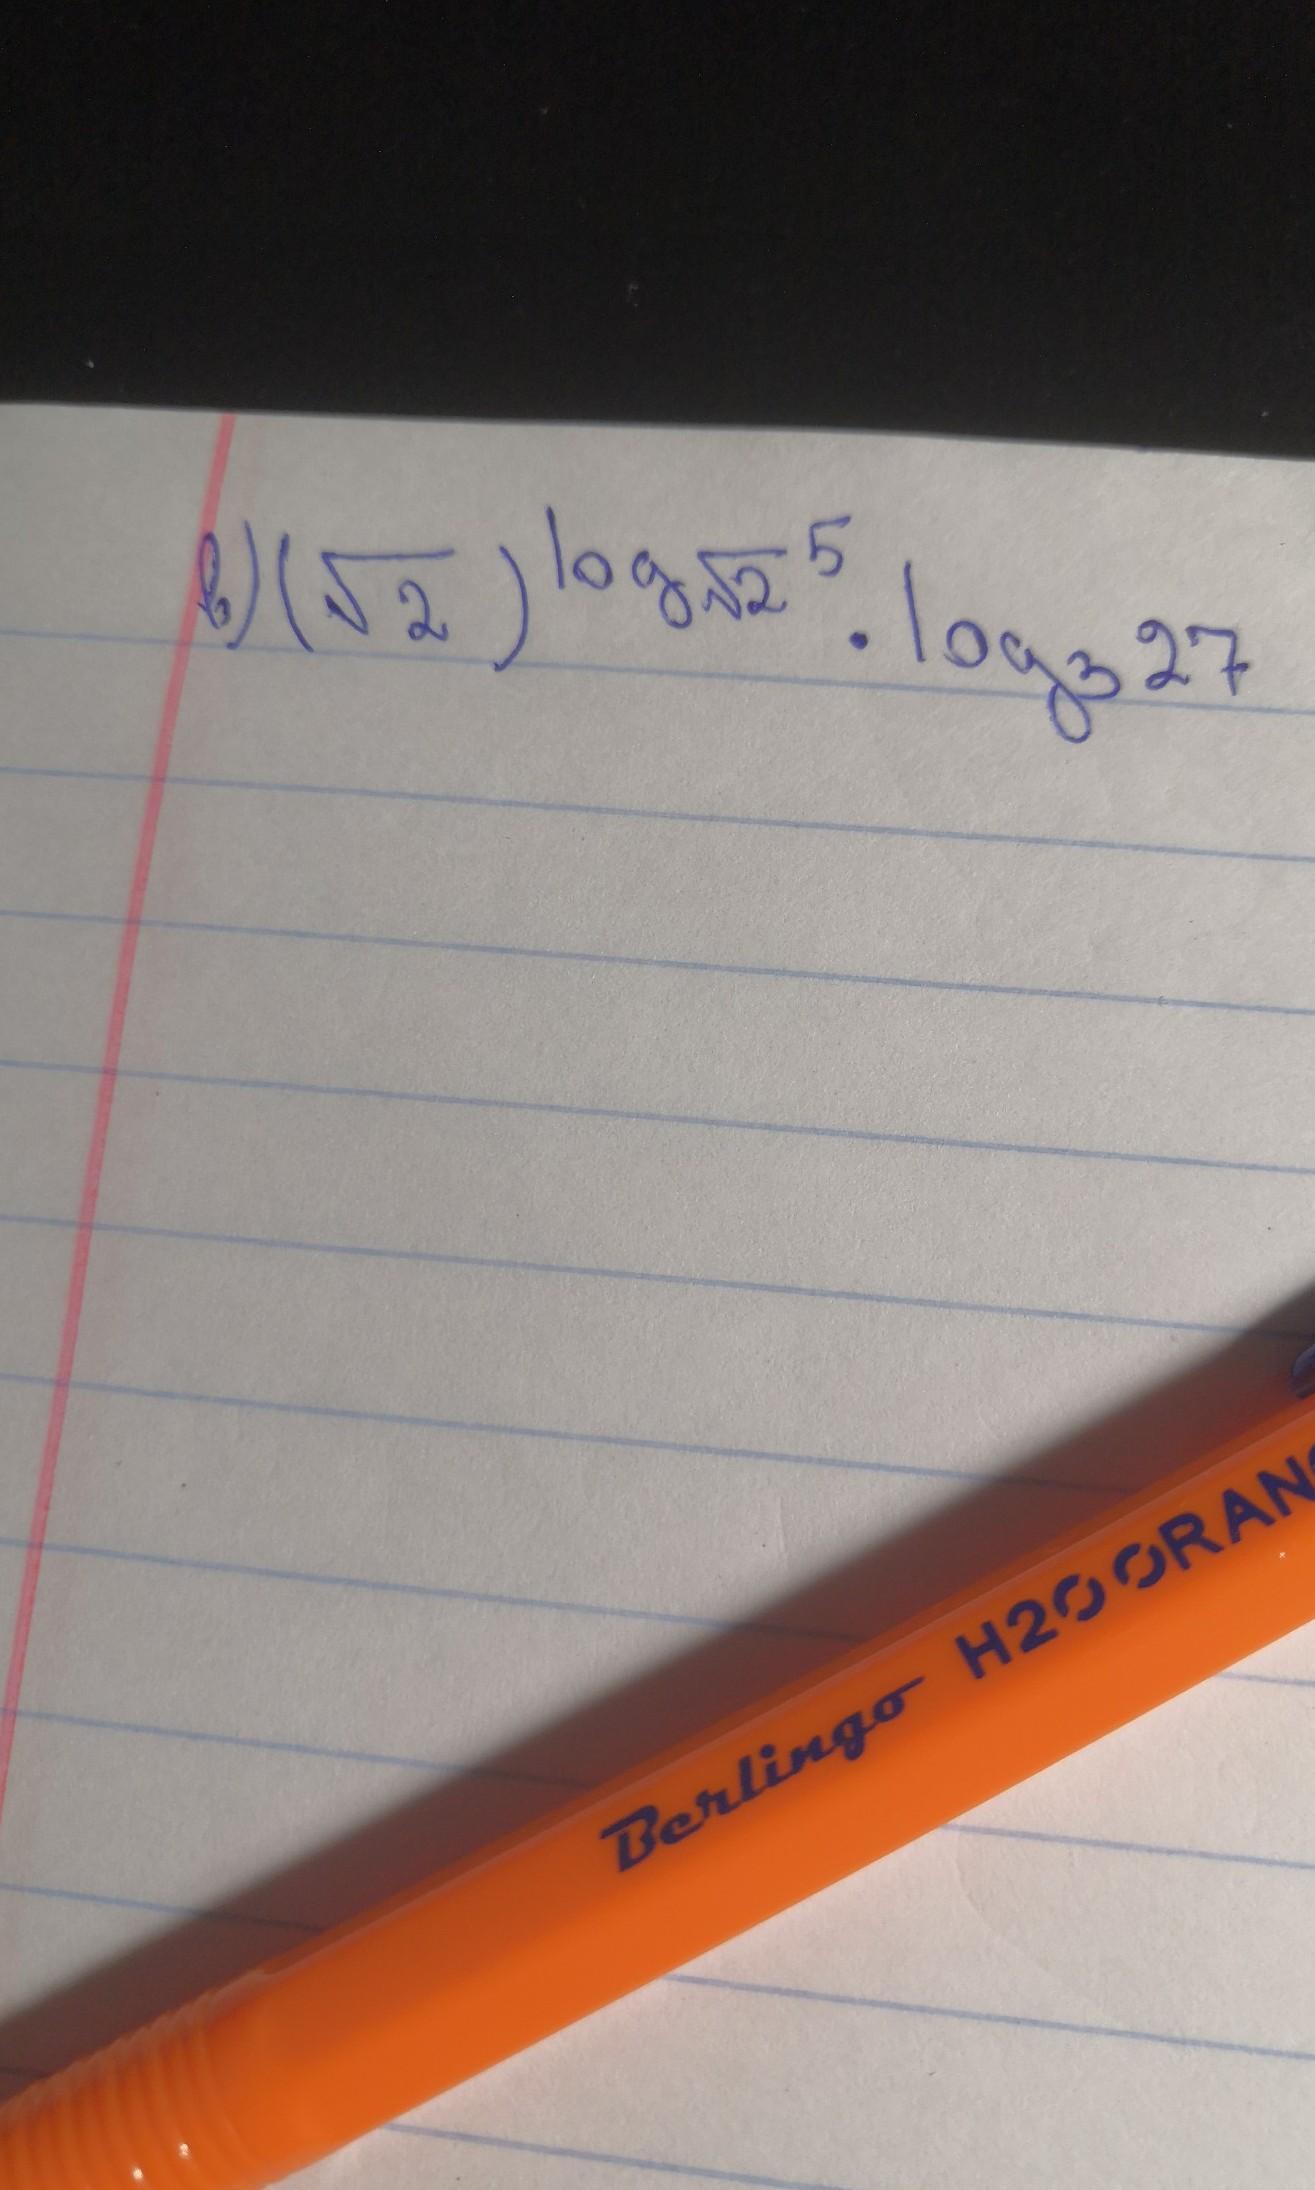 в) (√2)^log_√2 5 · log₃ 27
Berlingo H2O ORANG